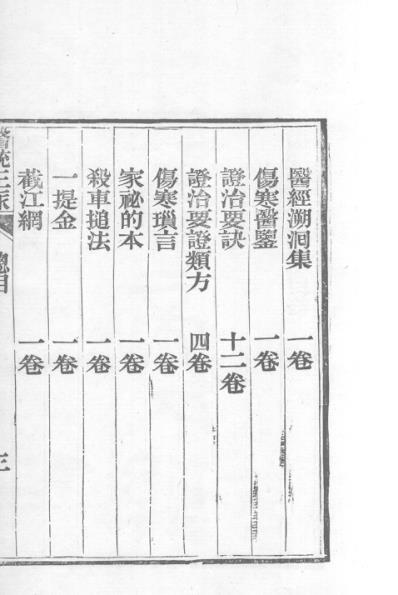 醫經溯洄集 一卷
傷寒醫鑒 一卷
證治要訣 十二卷
證治要證類方 四卷
傷寒瑣言 一卷
家祕的本 一卷
殺車搥法 一卷
一提金 一卷
截江網 一卷
醫統正脉 總目 三